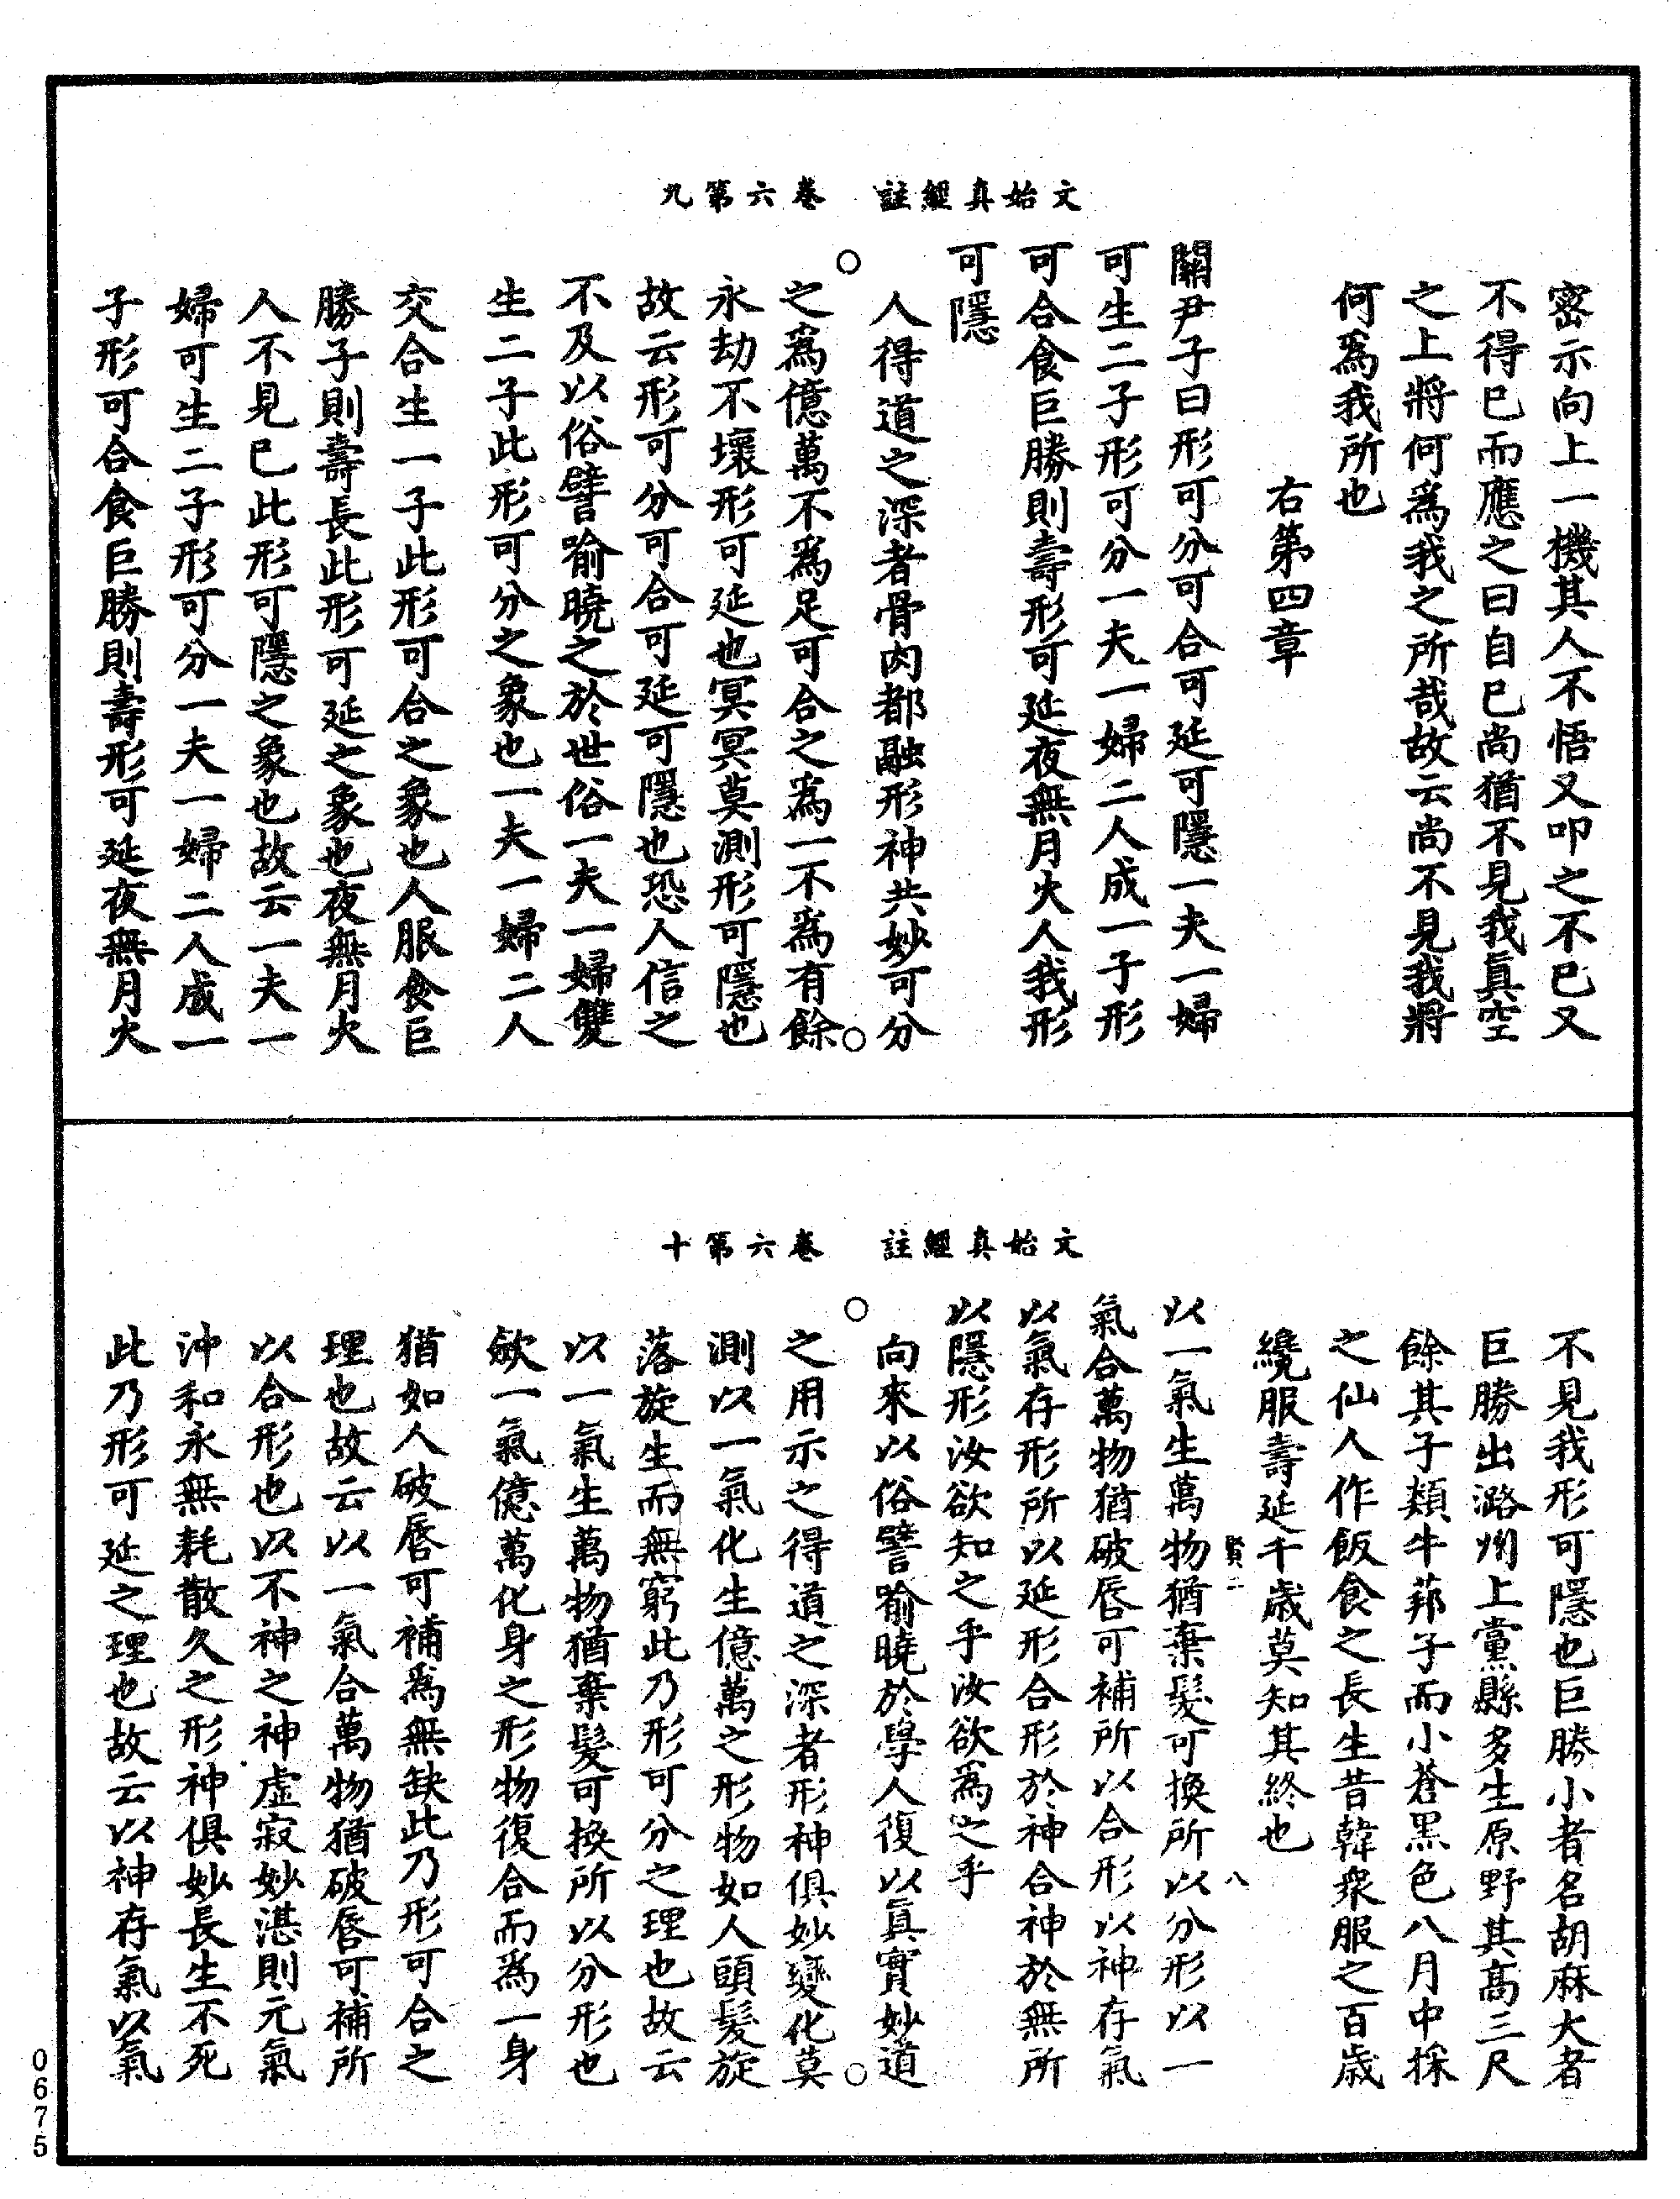 文始真經註　卷六第九
密示向上一機其人不悟又叩之不已又
不得已而應之曰自已尚猶不見我真空
之上將何為我之所哉故云尚不見我將
何為我所也
右第四章
關尹子曰形可分可合可延可隱一夫一婦
可生二子形可分一夫一婦二人成一子形
可合食巨勝則壽形可延夜無月火人我形
可隱
人得道之深者骨肉都融形神共妙可分
之為億萬不為足可合之為一不為有餘
永劫不壞形可延也冥冥莫測形可隱也
故云形可分可合可延可隱也恐人信之
不及以俗譬喻曉之於世俗一夫一婦雙
生二子此形可分之象也一夫一婦二人
交合生一子此形可合之象也人服食巨
勝子則壽長此形可延之象也夜無月火
人不見已此形可隱之象也故云一夫一
婦可生二子形可分一夫一婦二人成一
子形可合食巨勝則壽形可延夜無月火
文始真經註　卷六第十
不見我形可隱也巨勝小者名胡麻大者
巨勝出潞州上黨縣多生原野其高三尺
餘其子類牛蒡子而小蒼黑色八月中採
之仙人作飯食之長生昔韓衆服之百歲
纔服壽延千歲莫知其終也
賢二　八
以一氣生萬物猶棄髮可換所以分形以一
氣合萬物猶破唇可補所以合形以神存氣
以氣存形所以延形合形於神合神於無所
以隱形汝欲知之乎汝欲為之乎
向來以俗譬喻曉於學人復以真實妙道
之用示之得道之深者形神俱妙變化莫
測以一氣化生億萬之形物如人頭髮旋
落旋生而無窮此乃形可分之理也故云
以一氣生萬物猶棄髮可換所以分形也
歛一氣億萬化身之形物復合而為一身
猶如人破唇可補為無缺此乃形可合之
理也故云以一氣合萬物猶破唇可補所
以合形也以不神之神虛寂妙湛則元氣
沖和永無耗散久之形神俱妙長生不死
此乃形可延之理也故云以神存氣以氣
0675